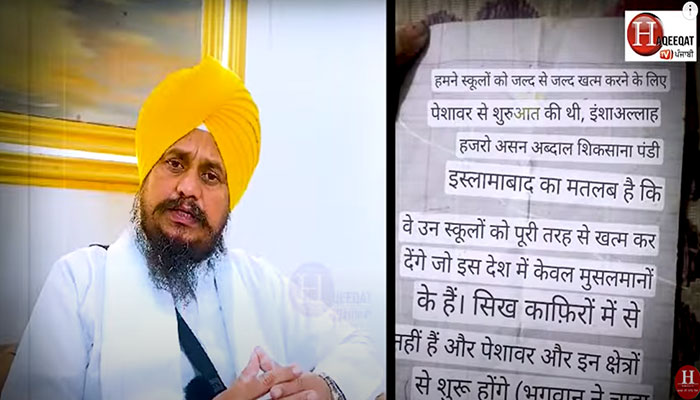 HAQEEQAT
TV ਪੰਜਾਬੀ
हमने स्कूलों को जल्द से जल्द खत्म करने के लिए
पेशावर से शुरुआत की थी, इंशाअल्लाह
हजरो असन अब्दाल शिकसाना पंडी
इस्लामाबाद का मतलब है कि
वे उन स्कूलों को पूरी तरह से खत्म कर
देंगे जो इस देश में केवल मुसलमानों
के हैं। सिख काफ़िरों में से
नहीं हैं और पेशावर और इन क्षेत्रों
से शुरू होंगे (भगवान ने चाहा
HAQEEQAT
H